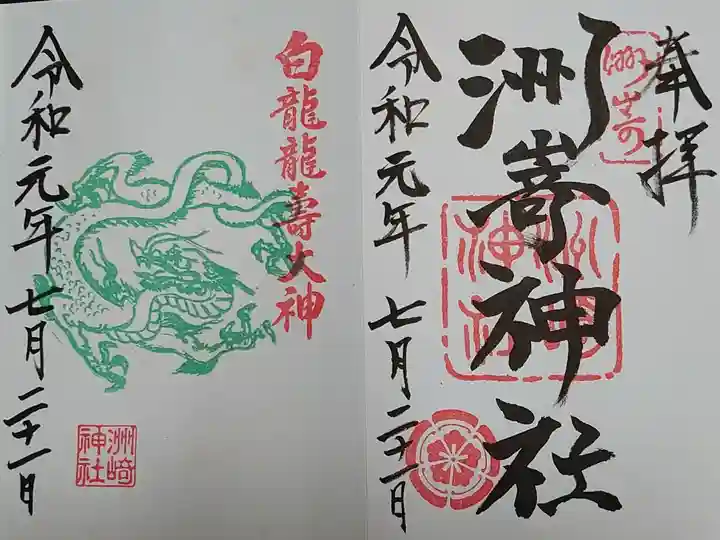 奉拝
洲嵜
洲嵜神社
洲嵜神社
令和元年 七月二十一日
白龍龍壽大神
洲崎神社
令和元年 七月二十一日